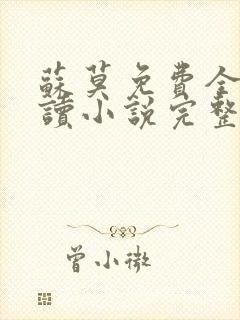 蘇莫免費全
讀小說完整
曾小微